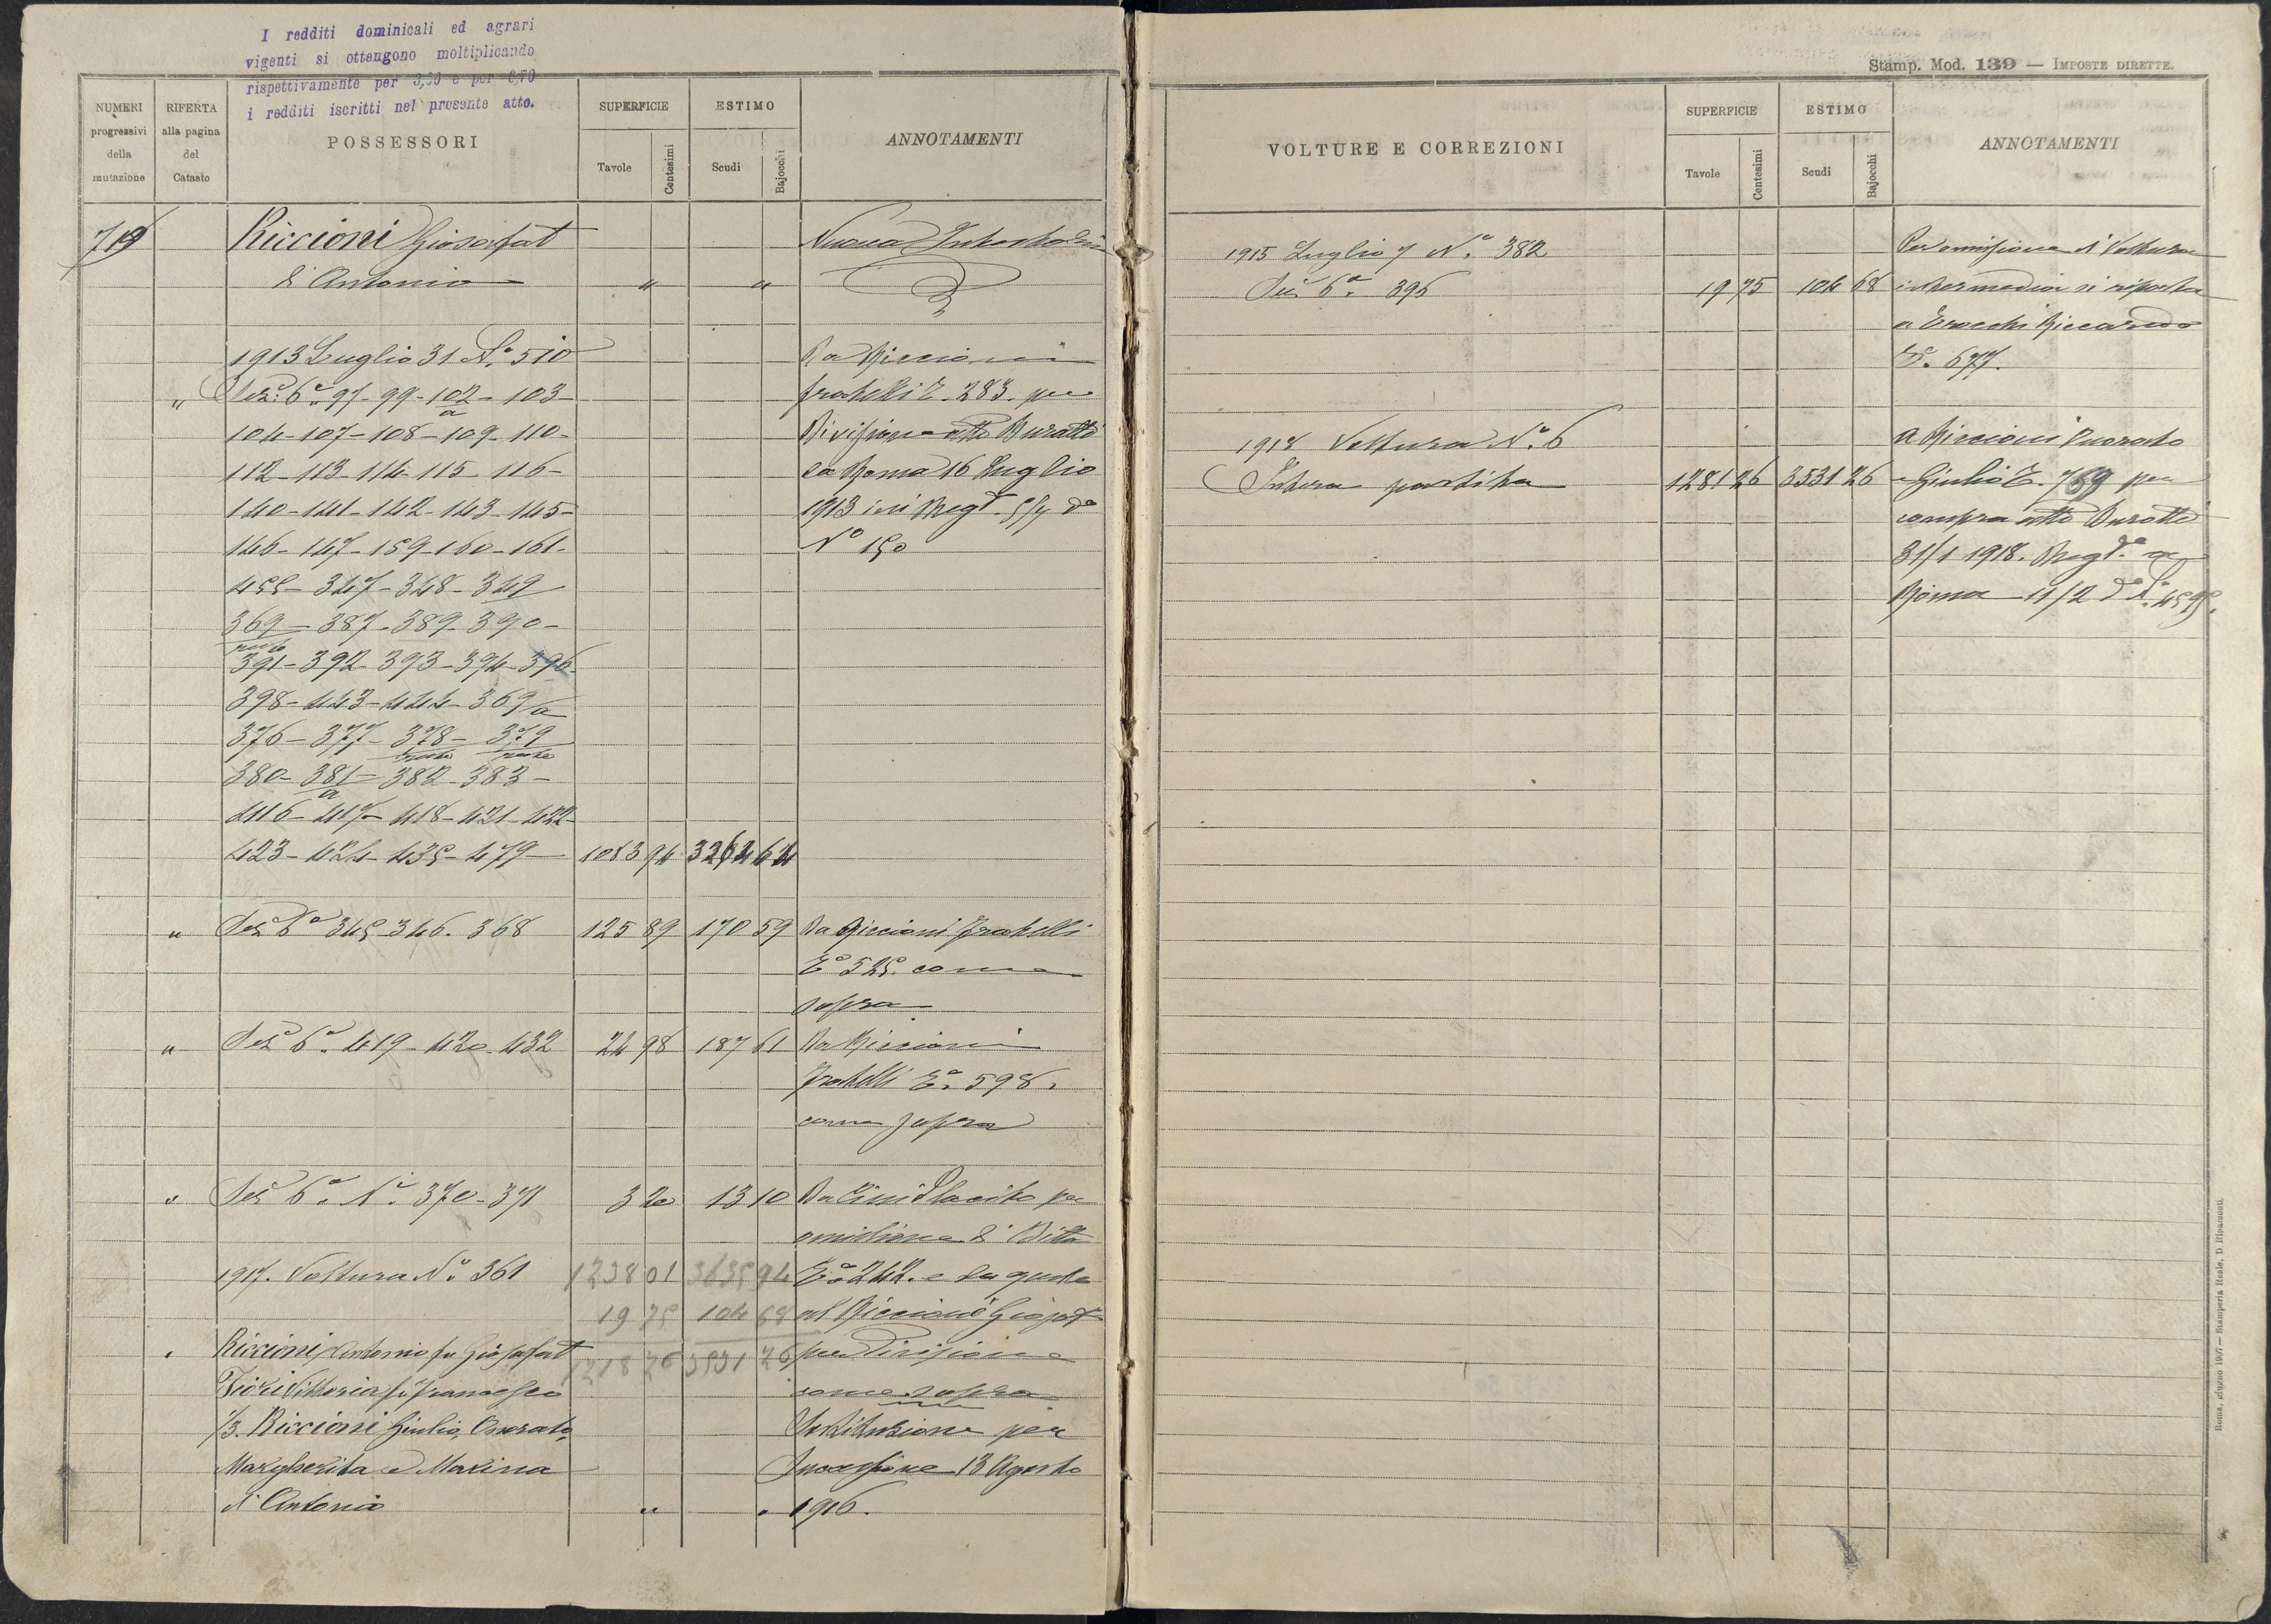 I redditi dominicali ed agrari
vigenti si ottengono moltiplicando
rispettivamente per 3,50 e per 6,70
i redditi iscritti nel presente atto.
NUMERI progressivi della mutazione
RIFERTA alla pagina del Catasto
POSSESSORI
SUPERFICIE
Tavole
Centesimi
ESTIMO
Scudi
Bajocchi
ANNOTAMENTI
719 Riccioni Giosafat Nuova Intestazione
d'Antonio " "
1913 Luglio 31 N.° 510 Da Riccioni
" Sez. 6ª 97-99-102/a-103- fratelli E. 283. per
104-107-108-109-110- Divisione atto Buratti
112-113-114-115-116- da Roma 16 Luglio
140-141-142-143-145- 1913 ivi Regt.
146-147-159-160-161- N° 150
455-347-348-349
369-387-389-390-
resto
391-392-393-394-396-
398-443-444-369/a
376-377-378-379
resto resto
380-381-382-383-
a
416-417-418-421-422-
423-424-435-479 1083 94 3264 64
" Sez 6ª 345-346-368 125 89 170 59 Da Riccioni Fratelli
E° 525. come
sopra
" Sez 6ª 419-420-432 24 98 187 61 Da Riccioni
Fratelli E° 598.
come sopra
" Sez 6ª N.° 370-371 3 20 13 10 Da Cini Placito per
omissione di Ditta
1917. Voltura N° 361 1238 01 3635 94 E° 242. e da questa
19 75 104 68 al Riccioni Giosafat
Riccioni Antonio fu Giosafat 1218 26 3531 26 per Divisione
Fiori Vittoria fu Francesco come sopra
1/3. Riccioni Giulio, Onorato, Sostituzione per
Margherita e Marina Successione 13 Agosto
d'Antonio " " 1916.
Stamp. Mod. 139 — IMPOSTE DIRETTE.
VOLTURE E CORREZIONI
SUPERFICIE
Tavole
Centesimi
ESTIMO
Scudi
Bajocchi
ANNOTAMENTI
1915 Luglio 7 N.° 382 Per omissione di Voltura
Sez 6ª 396 19 75 104 68 intermedia si riporta
a Riccardo
E°. 677.
1918 Voltura N.° 6 A Riccioni Onorato
Intera partita 1281 26 3531 26 e Giulio E. 769 per
compra atto Buratti
31/1 1918. Regt.° a
Roma 11/2 d° N.° 4595.
Roma, giugno 1907 — Stamperia Reale, D. Ripamonti.